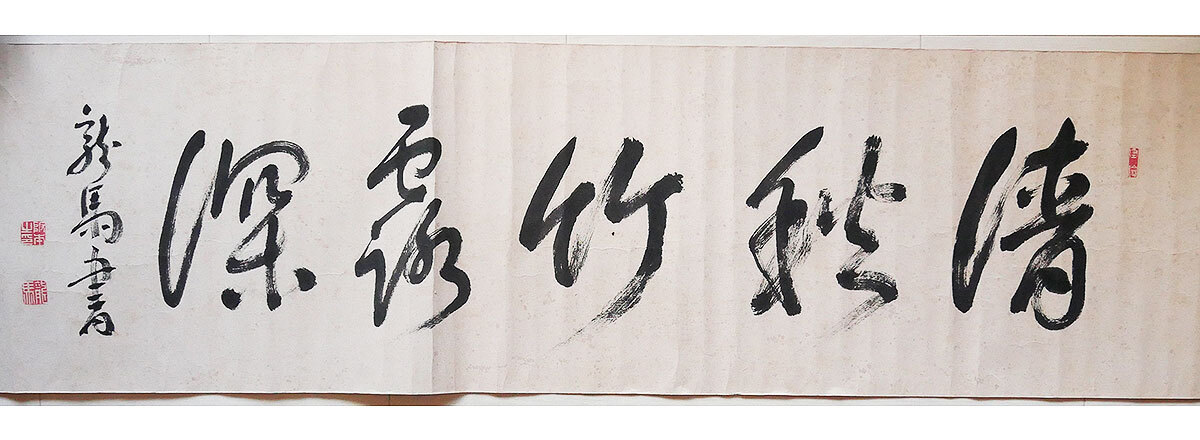 清秋竹露深
龍馬書